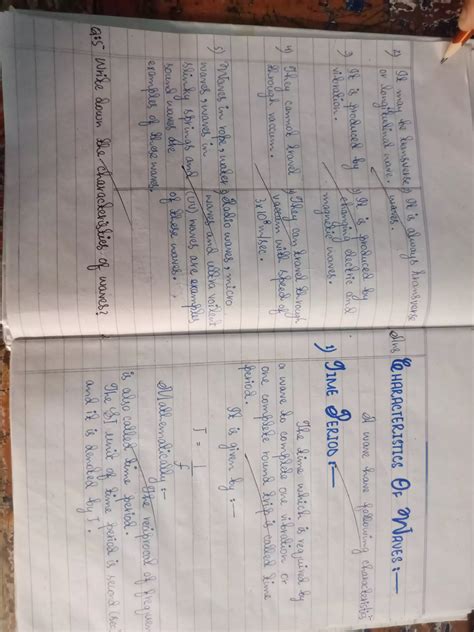 2) It may be transverse 2) It is always transverse
or longitudinal wave. waves.
3) It is produced by 3) It is produced by
vibration. changing electric and
magnetic waves.
4) They cannot travel 4) They can travel through
through vaccum. vaccum with speed of
3x10⁸ m/sec.
5) Waves in rope, water 5) Radio waves, micro
waves, waves in waves and ultra voilent
slinky springs and (UV) waves are examples
sound waves are of these waves.
examples of these waves.
Q:5 Write down the characteristics of waves?
Ans CHARACTERISTICS OF WAVES:—
A wave have following characteristics
1) TIME PERIOD:—
The time which is required by
a wave to complete one vibration or
one complete round trip is called time
period.
It is given by :—
T = 1/f
Mathematically :—
The reciprocal of frequen
is also called time period.
The SI unit of time period is second (sec
and it is denoted by T.